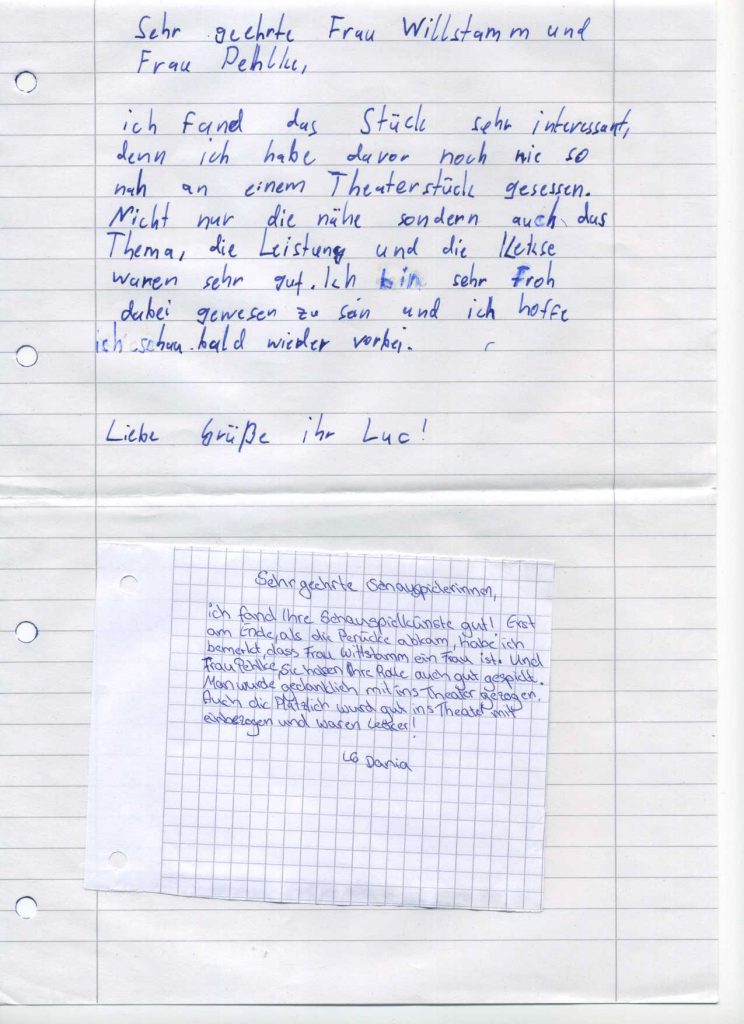 Sehr geehrte Frau Willstamm und
Frau Pehlke,
ich fand das Stück sehr interessant,
denn ich habe davor noch nie so
nah an einem Theaterstück gesessen.
Nicht nur die nähe sondern auch das
Thema, die Leistung und die Kekse
waren sehr gut. Ich bin sehr froh
dabei gewesen zu sein und ich hoffe
ich schau bald wieder vorbei.
Liebe Grüße ihr Luc!
Sehr geehrte Schauspielerinnen,
ich fand Ihre Schauspielkünste gut! Erst
am Ende, als die Perücke abkam, habe ich
bemerkt, dass Frau Wittstamm ein Frau ist. Und
Frau Pehlke, Sie haben Ihre Rolle auch gut gespielt.
Man wurde gedanklich mit ins Theater gezogen.
Auch die Plätzlich wurd gut ins Theater mit
einbezogen und waren Lecker!
LG Dania